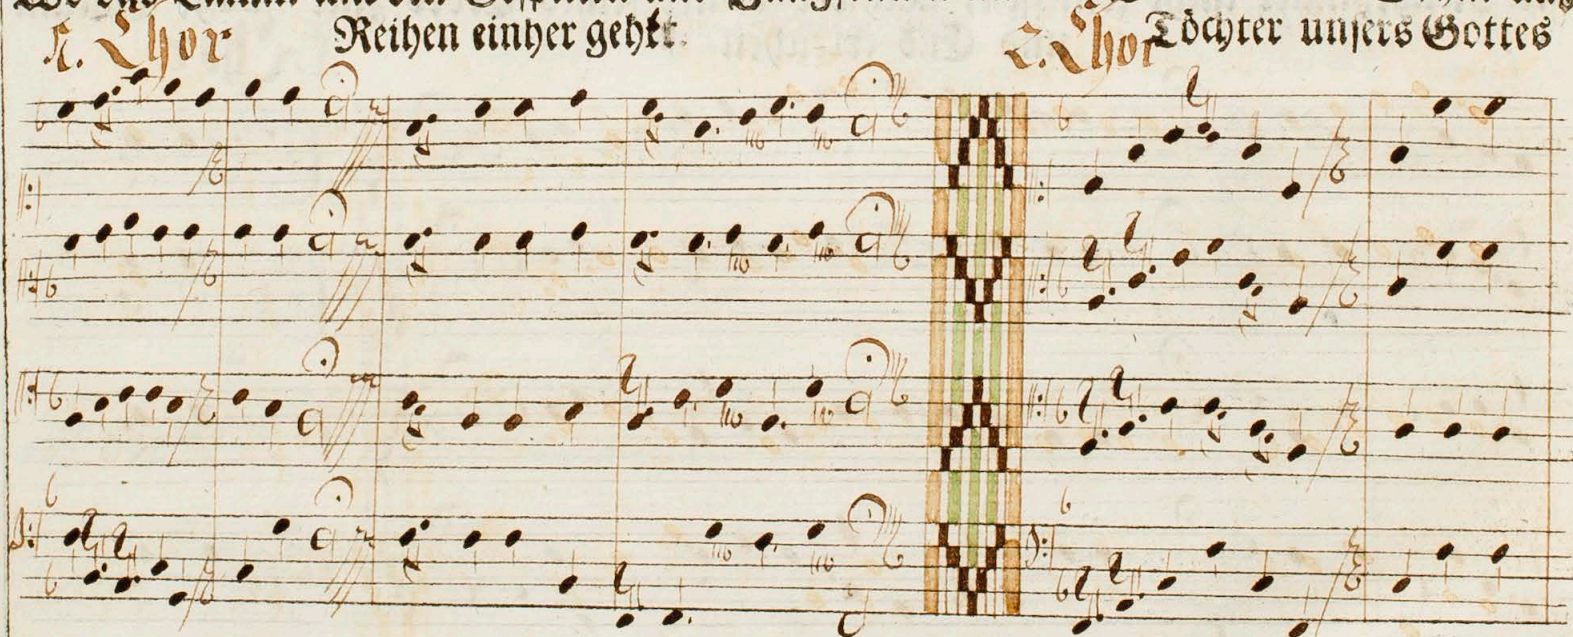 1. Chor Reihen einher gehet. 2. Chor Töchter unsers Gottes